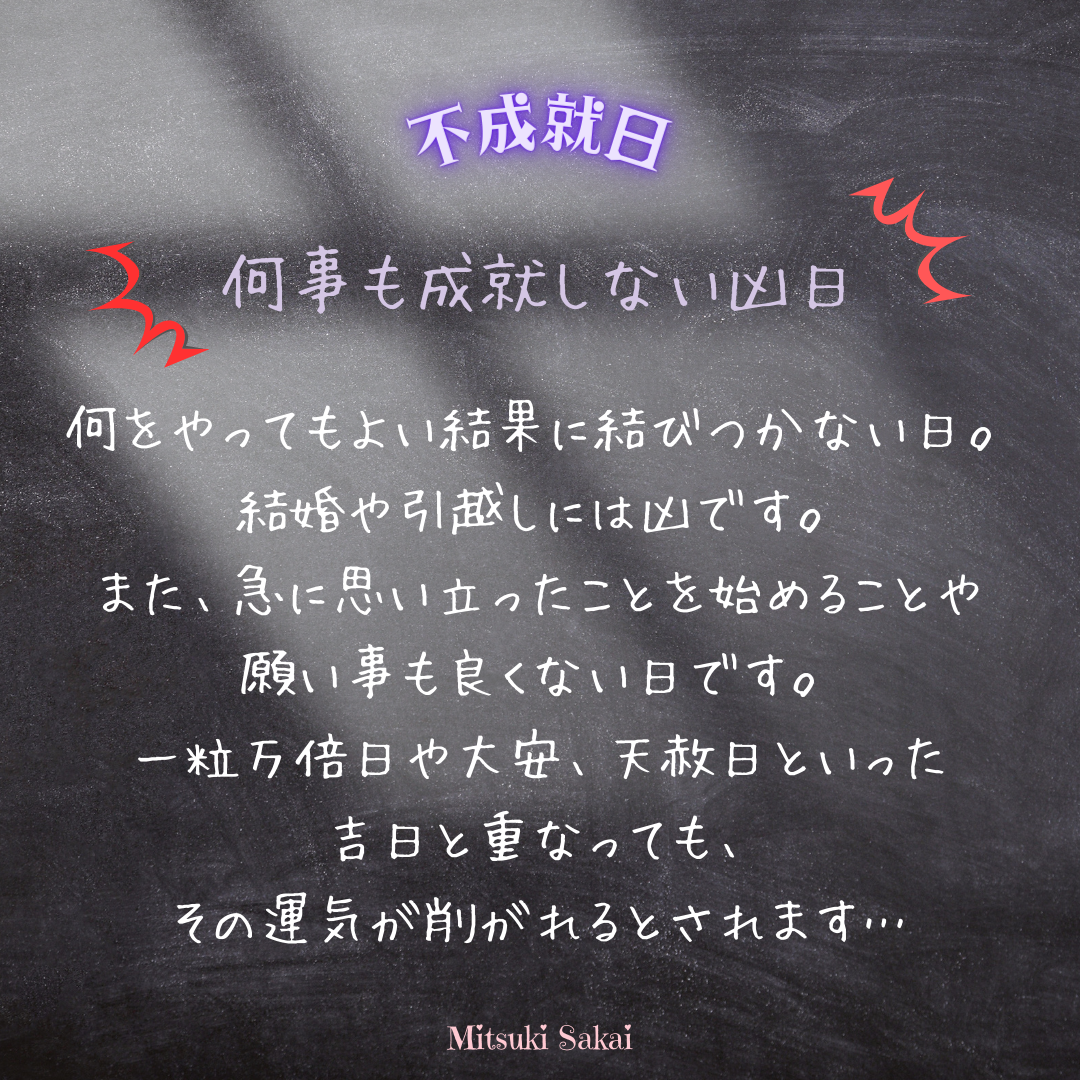 不成就日
何事も成就しない凶日
何をやってもよい結果に結びつかない日。
結婚や引越しには凶です。
また、急に思い立ったことを始めることや
願い事も良くない日です。
一粒万倍日や大安、天赦日といった
吉日と重なっても、
その運気が削がれるとされます…
Mitsuki Sakai